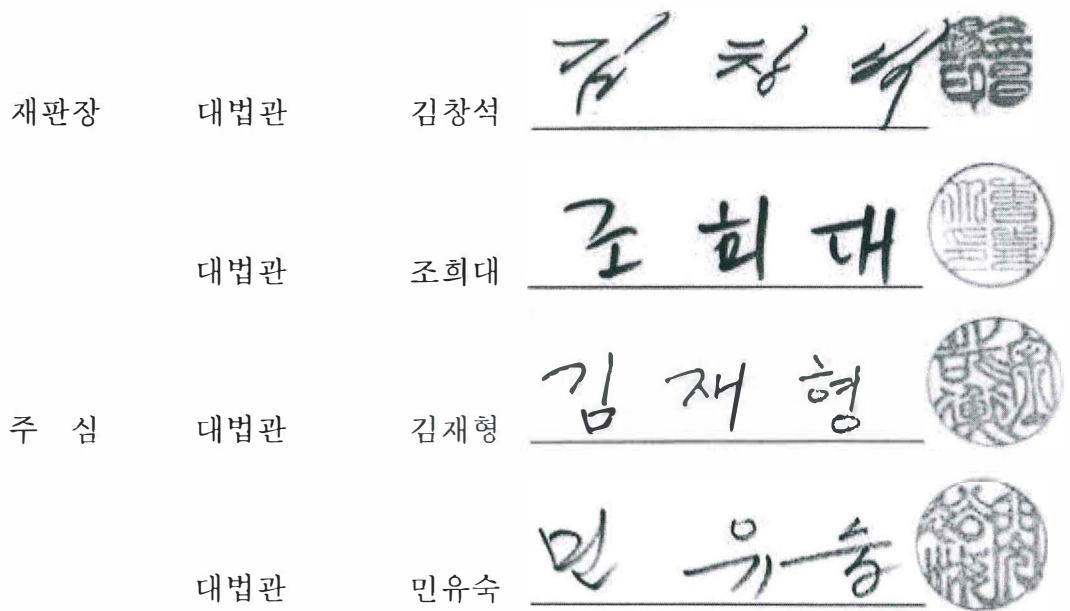 재판장 대법관 김창석 김 창 석
대법관 조희대 조 희 대
주 심 대법관 김재형 김 재 형
대법관 민유숙 민 유 숙